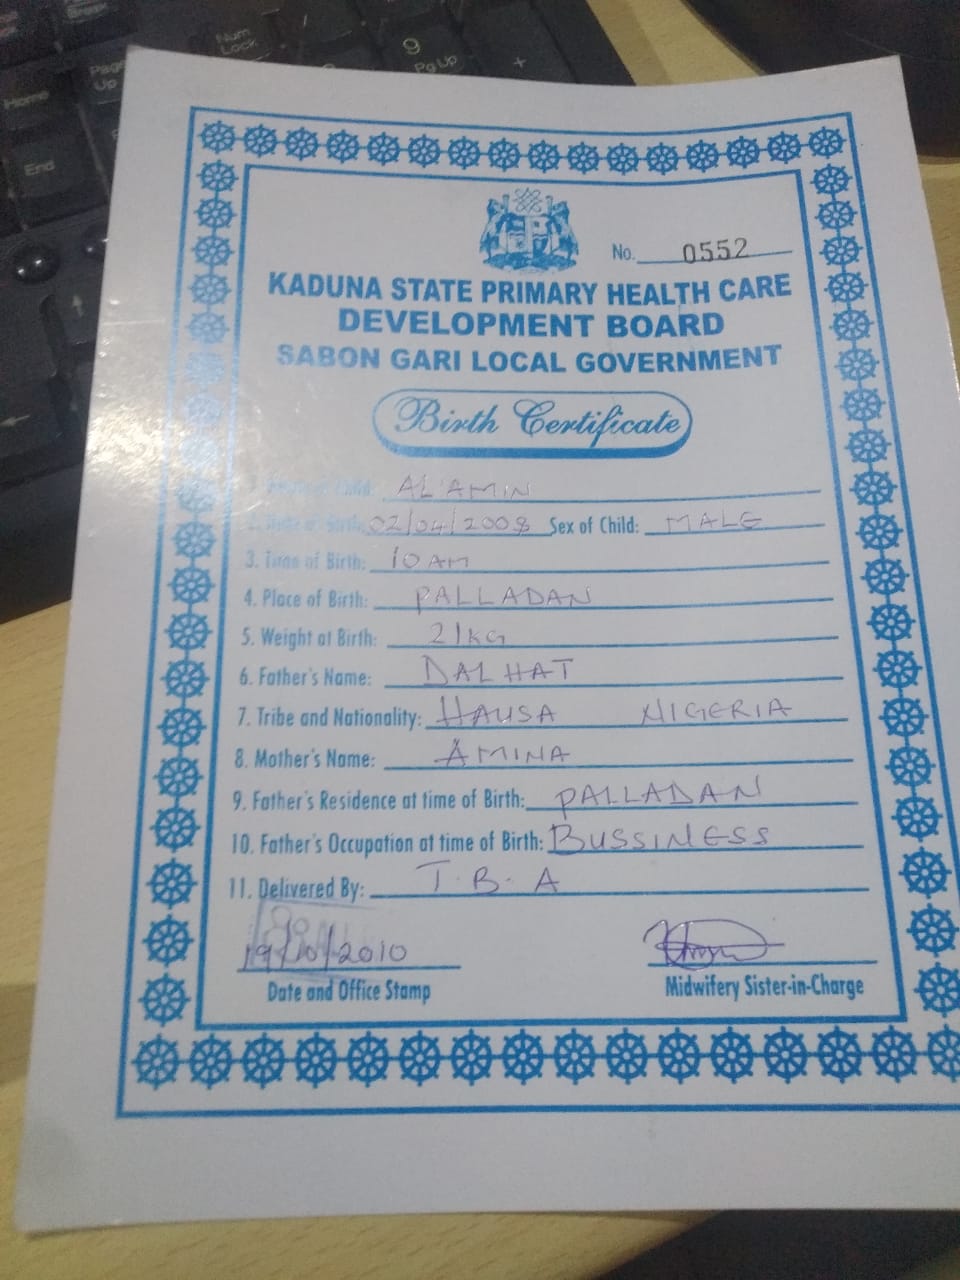 Num Lock
9 PgUp
Page Up
Home
+
End
No. 0552
KADUNA STATE PRIMARY HEALTH CARE
DEVELOPMENT BOARD
SABON GARI LOCAL GOVERNMENT
Birth Certificate
Child: AL'AMIN
2. Date of Birth: 02/04/2008 Sex of Child: MALE
3. Time of Birth: 10 AM
4. Place of Birth: PALLADAN
5. Weight at Birth: 21KG
6. Father's Name: DALHAT
7. Tribe and Nationality: HAUSA NIGERIA
8. Mother's Name: AMINA
9. Father's Residence at time of Birth: PALLADAN
10. Father's Occupation at time of Birth: BUSSINESS
11. Delivered By: T.B.A
19/10/2010
Date and Office Stamp
Midwifery Sister-in-Charge